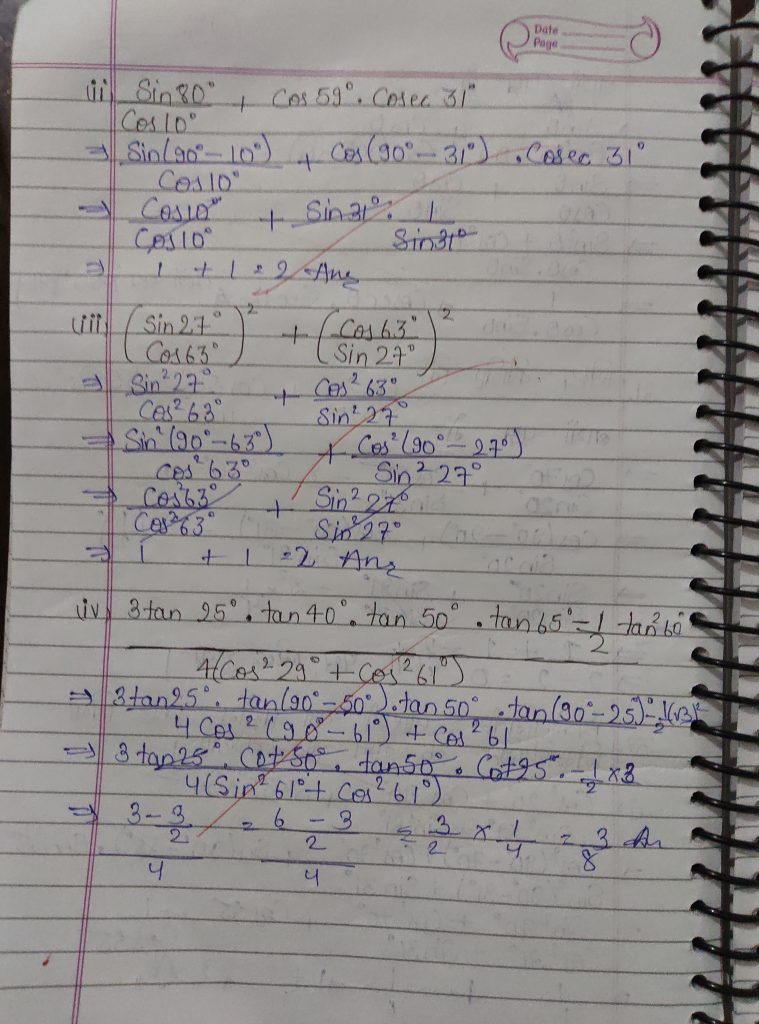 Date
Page
(ii) Sin 80° / Cos 10° + Cos 59° . Cosec 31°
⇒ Sin(90° – 10°) / Cos 10° + Cos(90° – 31°) . Cosec 31°
⇒ Cos 10° / Cos 10° + Sin 31° . 1 / Sin 31°
⇒ 1 + 1 = 2 Ans
(iii) (Sin 27° / Cos 63°)² + (Cos 63° / Sin 27°)²
⇒ Sin² 27° / Cos² 63° + Cos² 63° / Sin² 27°
⇒ Sin² (90° – 63°) / Cos² 63° + Cos² (90° – 27°) / Sin² 27°
⇒ Cos² 63° / Cos² 63° + Sin² 27° / Sin² 27°
⇒ 1 + 1 = 2 Ans
(iv) 3 tan 25° . tan 40° . tan 50° . tan 65° – 1/2 tan² 60° / 4(Cos² 29° + Cos² 61°)
⇒ 3 tan 25° . tan(90° – 50°) . tan 50° . tan(90° – 25)° – 1/2 (√3)² / 4 Cos² (90° – 61°) + Cos² 61
⇒ 3 tan 25° . Cot 50° . tan 50° . Cot 25° . – 1/2 × 3 / 4(Sin² 61° + Cos² 61°)
⇒ 3 – 3/2 / 4 = 6 – 3 / 2 / 4 = 3/2 × 1/4 = 3/8 An